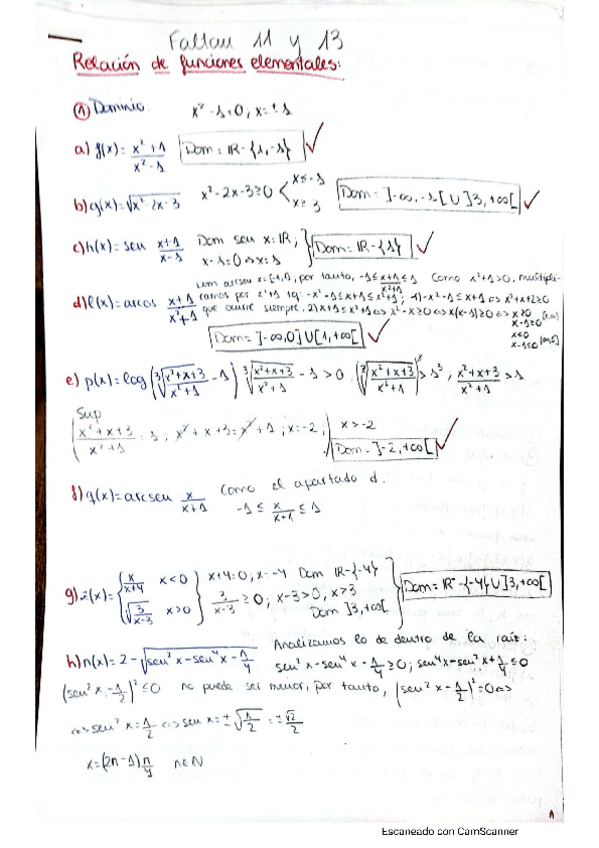 Faltan 11 y 13
Relación de funciones elementales:
① Dominio x²-1=0, x=±1
a) f(x)= (x²+1)/(x²-1) Dom= IR-{1,-1}
b) g(x)=√(x²-2x-3) x²-2x-3≥0 < x≤-1 x≥3 Dom=]-∞,-1[U]3,+∞[
c) h(x)= sen (x+1)/(x-1) Dom sen x=IR; x-1=0⇔x=1 } Dom=IR-{1}
arcsen x=[-1,1], por tanto, -1≤(x+1)/(x²+1)≤1 Como x²+1>0, multipli-
d) l(x)=arcos (x+1)/(x²+1) ramos por x²+1 tq: -x²-1≤x+1≤x²+1; 1)-x²-1≤x+1⇔x²+x+2≥0
que ocurre siempre. 2)x+1≤x²+1⇔x²-x≥0⇔x(x-1)≥0⇔ x≥0 x-1≥0 x≤0 x-1≤0
Dom=]-∞,0]U[1,+∞[
e) p(x)=log(∛((x²+x+3)/(x²+1))-1) ∛((x²+x+3)/(x²+1))-1>0 (∛((x²+x+3)/(x²+1)))³>1³; (x²+x+3)/(x²+1)>1
Sup
(x²+x+3)/(x²+1)=1; x²+x+3=x²+1; x=-2; x>-2
Dom=]-2,+∞[
f) q(x)=arcsen x/(x+1) Como el apartado d.
-1≤x/(x+1)≤1
g) z(x)={ x/(x+4) x<0 x+4=0; x=-4 Dom IR-{-4}
√(3/(x-3)) x>0 3/(x-3)≥0; x-3>0, x>3 Dom ]3,+∞[ } Dom=IR⁻-{-4}U]3,+∞[
h) n(x)=2-√(sen²x-sen⁴x-1/4) Analizamos lo de dentro de la raíz:
sen²x-sen⁴x-1/4≥0; sen⁴x-sen²x+1/4≤0
(sen²x-1/2)²≤0 no puede ser menor, por tanto, (sen²x-1/2)²=0⇔
⇔sen²x=1/2⇔sen x=±√(1/2)=±√2/2
x=(2n-1)π/4 n∈N
Escaneado con CamScanner